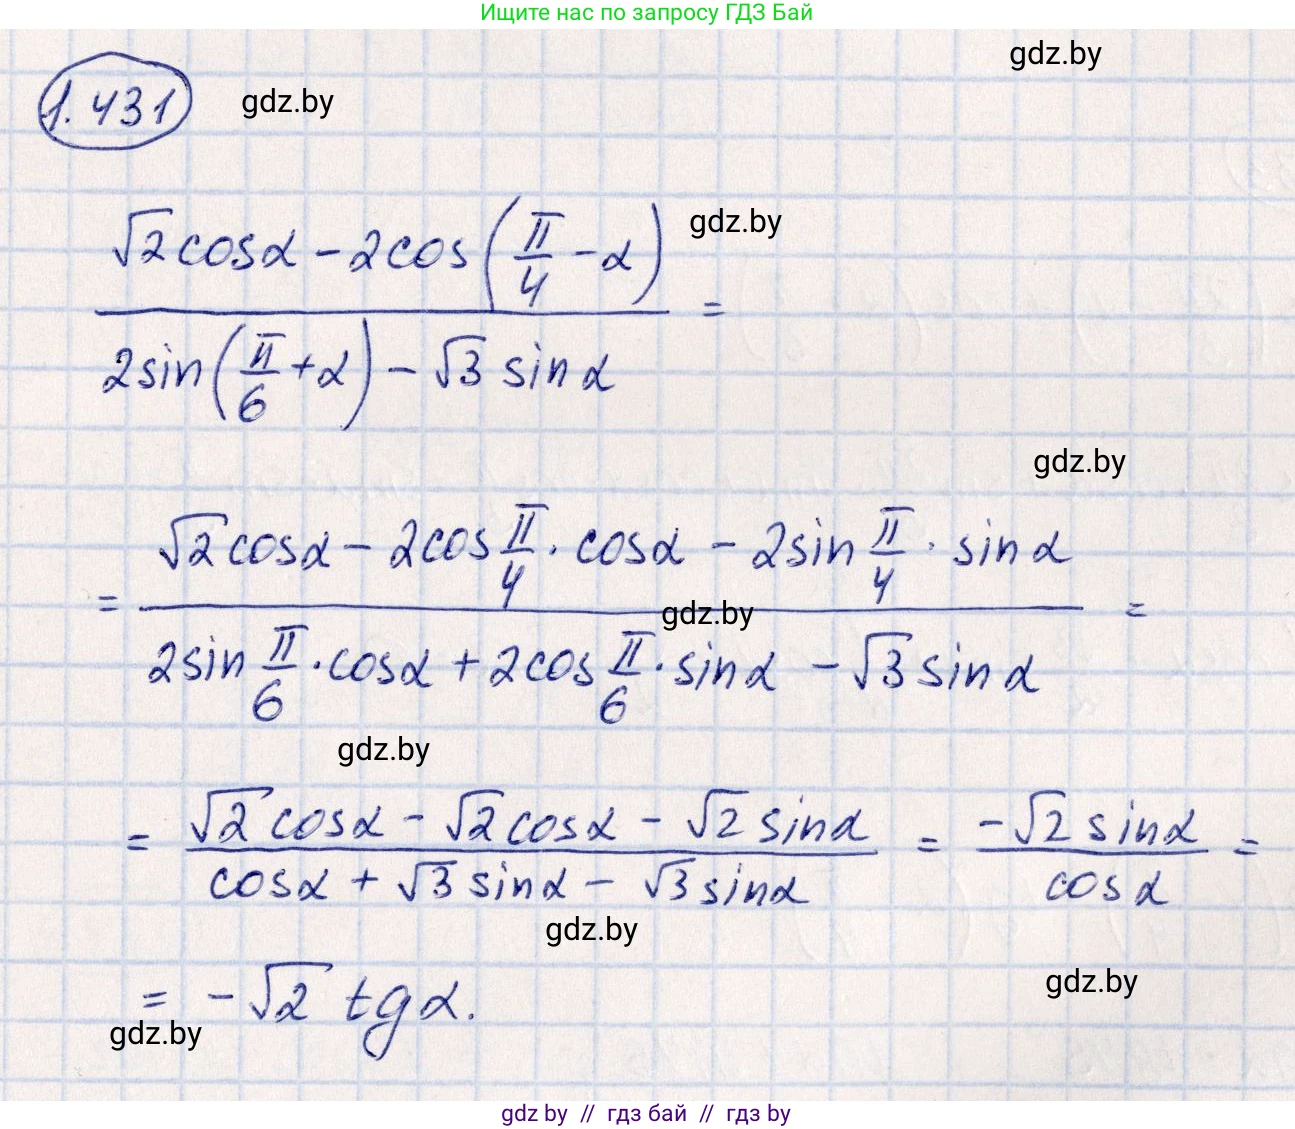 Ищите нас по запросу ГДЗ Бай
gdz.by
1.431 gdz.by
(√2 cosα - 2cos(π/4 - α)) / (2sin(π/6 + α) - √3 sinα) =
gdz.by
gdz.by
= (√2 cosα - 2cos π/4 · cosα - 2sin π/4 · sinα) / (2sin π/6 · cosα + 2cos π/6 · sinα - √3 sinα) =
gdz.by
gdz.by
= (√2 cosα - √2 cosα - √2 sinα) / (cosα + √3 sinα - √3 sinα) = (-√2 sinα) / (cosα) =
gdz.by
gdz.by
= -√2 tgα.
gdz.by
gdz.by // гдз бай // гдз by